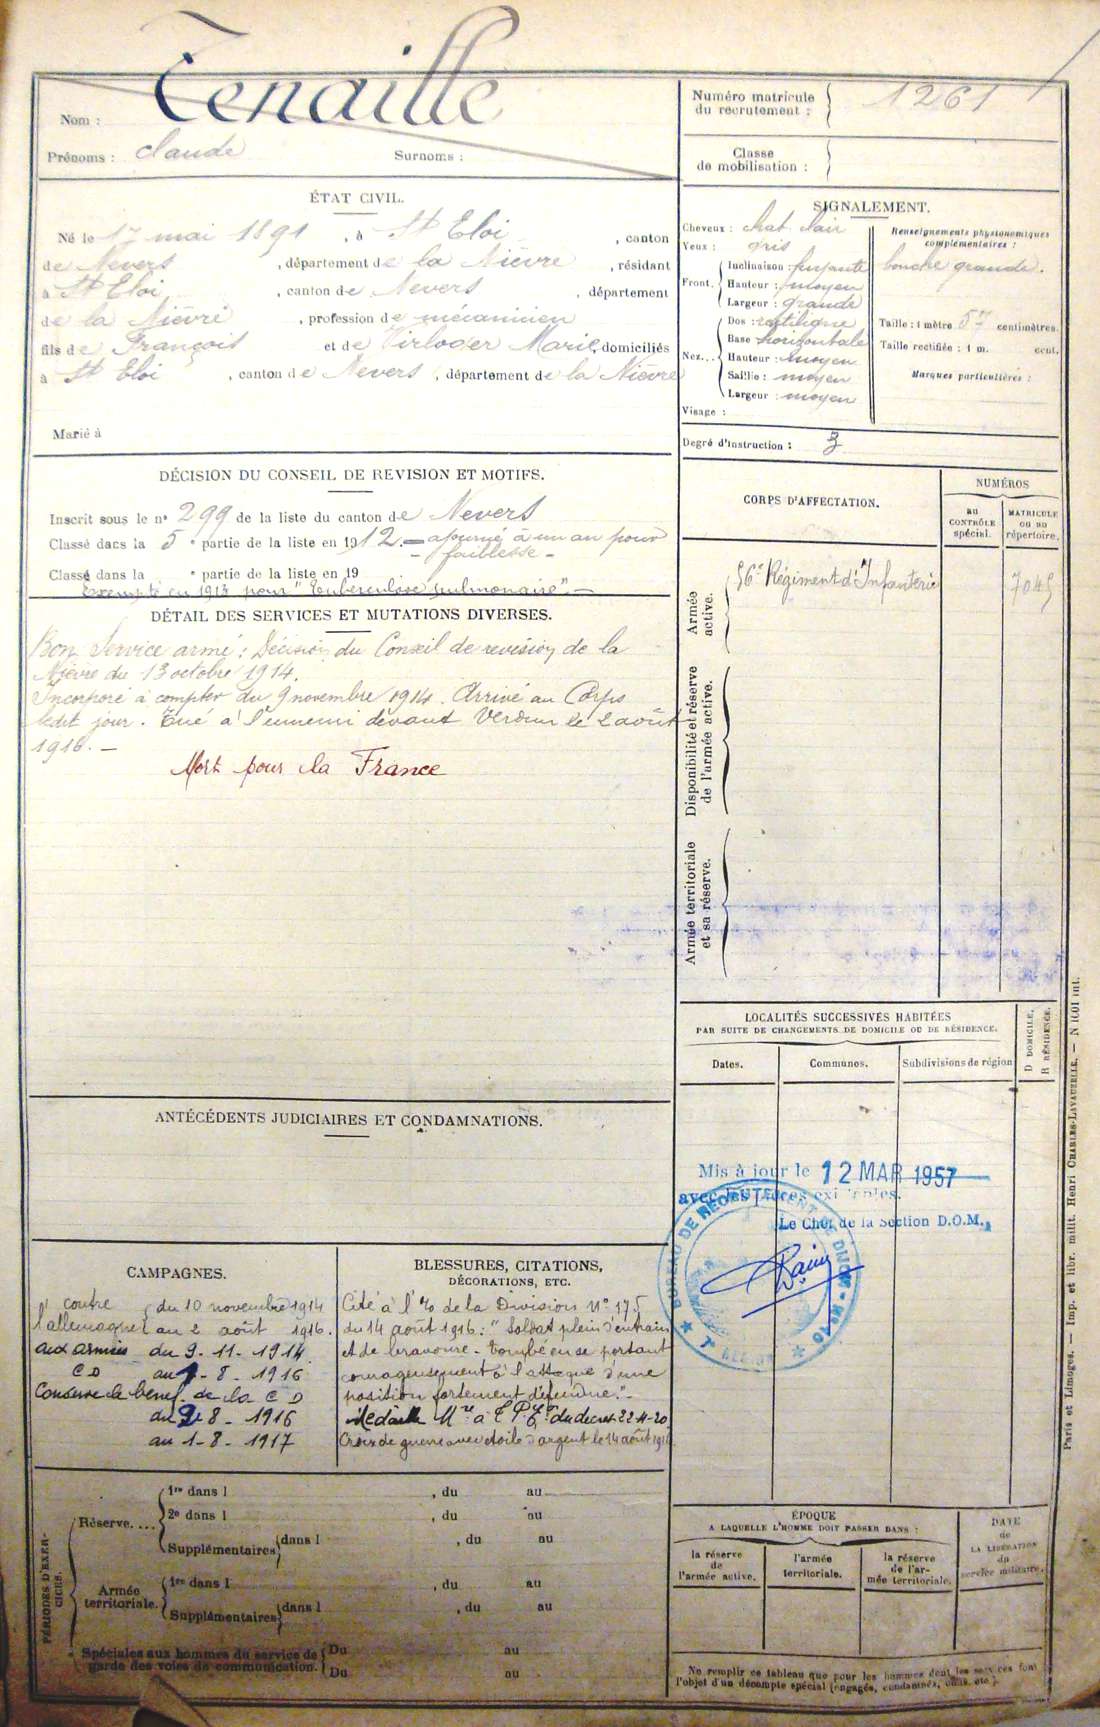 Nom : Tenaille
Prénoms : Claude Surnoms :
Numéro matricule du recrutement : 1261
Classe de mobilisation :
ÉTAT CIVIL.
Né le 17 mai 1891, à St Eloi, canton
de Nevers, département de la Nièvre, résidant
à St Eloi, canton de Nevers, département
de la Nièvre, profession de mécanicien
fils de François et de Virloger Marie, domiciliés
à St Eloi, canton de Nevers, département de la Nièvre
Marié à
SIGNALEMENT.
Cheveux : chat. clair
Yeux : gris
Front. Inclinaison : fuyante
Hauteur : moyen
Largeur : grande
Nez... Dos : rectiligne
Base horizontale
Hauteur : moyen
Saillie : moyen
Largeur : moyen
Visage :
Renseignements physionomiques
complémentaires :
bouche grande.
Taille : 1 mètre 57 centimètres.
Taille rectifiée : 1 m. cent.
Marques particulières :
Degré d'instruction : 3
DÉCISION DU CONSEIL DE REVISION ET MOTIFS.
Inscrit sous le n° 299 de la liste du canton de Nevers
Classé dans la 5e partie de la liste en 1912. - ajourné à un an pour
faiblesse -
Classé dans la e partie de la liste en 19
Exempté en 1913 pour "Tuberculose pulmonaire". -
DÉTAIL DES SERVICES ET MUTATIONS DIVERSES.
Bon Service armé : Décision du Conseil de revision de la
Nièvre du 13 octobre 1914.
Incorporé à compter du 9 novembre 1914. Arrivé au Corps
ledit jour. Tué à l'ennemi devant Verdun le 2 août
1916. -
Mort pour la France
CORPS D'AFFECTATION.
NUMÉROS
au CONTRÔLE spécial.
MATRICULE ou au répertoire.
Armée active.
56e Régiment d'Infanterie 7045
Disponibilité et réserve de l'armée active.
Armée territoriale et sa réserve.
LOCALITÉS SUCCESSIVES HABITÉES
PAR SUITE DE CHANGEMENTS DE DOMICILE OU DE RÉSIDENCE.
Dates. Communes. Subdivisions de région
D DOMICILE.
R RÉSIDENCE.
ANTÉCÉDENTS JUDICIAIRES ET CONDAMNATIONS.
Mis à jour le 12 MAR 1957
avec les pièces existantes.
Le Chef de la Section D.O.M.
BUREAU DE RECRUTEMENT DE DIJON
CAMPAGNES.
contre l'allemagne du 10 novembre 1914
au 2 août 1916.
aux armées du 9-11-1914
CD au 1-8-1916
Conserve le bénéf. de la CD
du 2-8-1916
au 1-8-1917
BLESSURES, CITATIONS,
DÉCORATIONS, ETC.
Cité à l'o/ de la Division N° 175
du 14 août 1916 : "Soldat plein d'entrain
et de bravoure. Tombé en se portant
courageusement à l'attaque d'une
position fortement défendue."-
Médaille Mre à T P Ze du decret 22-4-20
Croix de guerre avec étoile d'argent le 14 août 1916
PÉRIODES D'EXERCICES.
Réserve.... 1re dans l , du au
2e dans l , du au
Supplémentaires dans l , du au
Armée territoriale. 1re dans l , du au
Supplémentaires dans l , du au
Spéciales aux hommes du service de Du au
garde des voies de communication. Du au
ÉPOQUE
A LAQUELLE L'HOMME DOIT PASSER DANS :
la réserve de l'armée active.
l'armée territoriale.
la réserve de l'armée territoriale.
DATE de LA LIBÉRATION du service militaire.
Ne remplir ce tableau que pour les hommes dont les services font
l'objet d'un décompte spécial (engagés, condamnés, omis, etc.).
Paris et Limoges. — Imp. et libr. milit. Henri CHARLES-LAVAUZELLE. — N 1001 int.